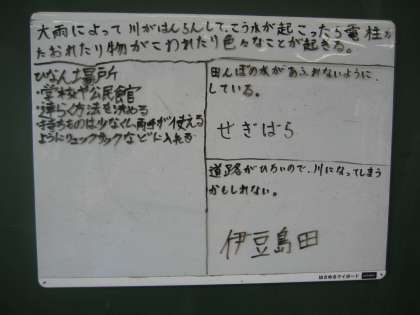 大雨によって川がはんらんして、こう水が起こったら電柱が
たおれたり物がこわれたり色々なことが起きる。
ひなん場所
・学校や公民館
・連らく方法を決める
・持ちものは少なくし、両手が使える
ようにリュックサックなどに入れる
田んぼの水があふれないように
している。
せぎばら
道路がひろいので、川になってしまう
かもしれない。
伊豆島田